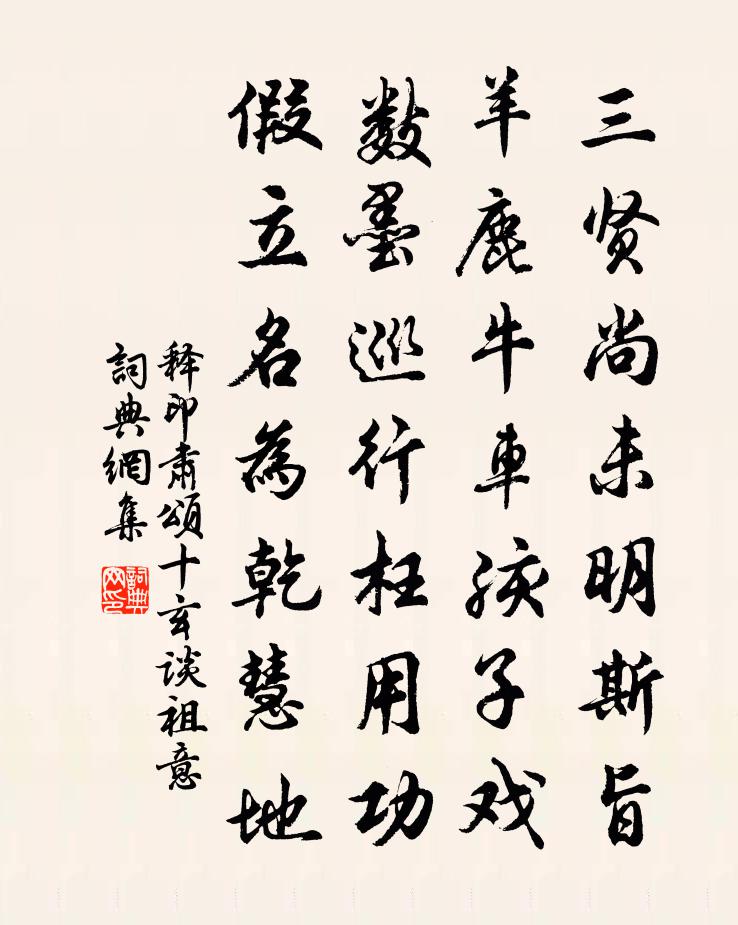 三贤尚未明斯旨
羊鹿牛車孩子戏
数墨巡行枉用功
假立名為乾慧地
释印肃頌十玄谈祖意
詞典網集
詞典網印